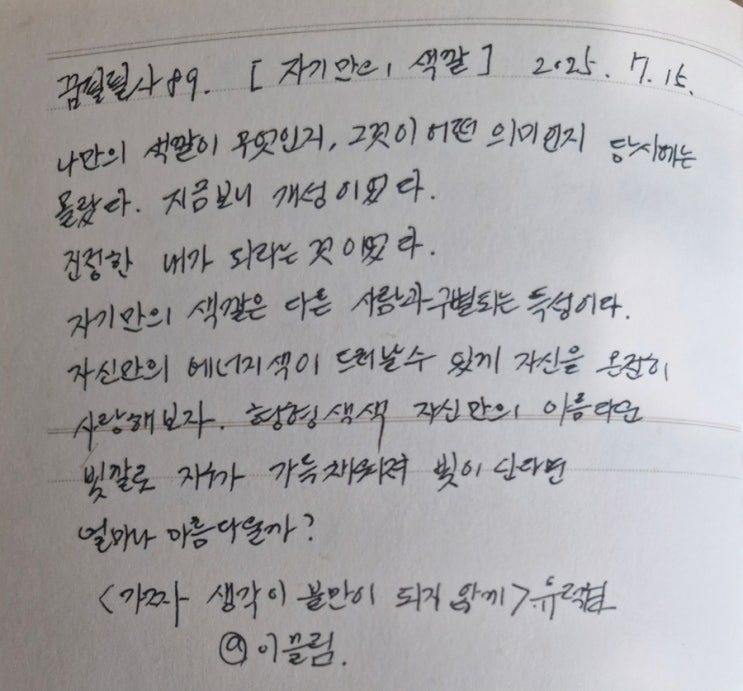 꿈필필사89. [자기만의 색깔] 2025. 7. 15.
나만의 색깔이 무엇인지, 그것이 어떤 의미인지 당시에는
몰랐다. 지금보니 개성이었다.
진정한 내가 되라는 것이었다.
자기만의 색깔은 다른 사람과 구별되는 특성이다.
자신만의 에너지색이 드러날 수 있게 자신을 온전히
사랑해보자. 형형색색 자신만의 아름다운
빛깔로 지구가 가득 채워져 빛이 난다면
얼마나 아름다울까?
<가짜 생각이 불만이 되지 않게>
@이끌림.